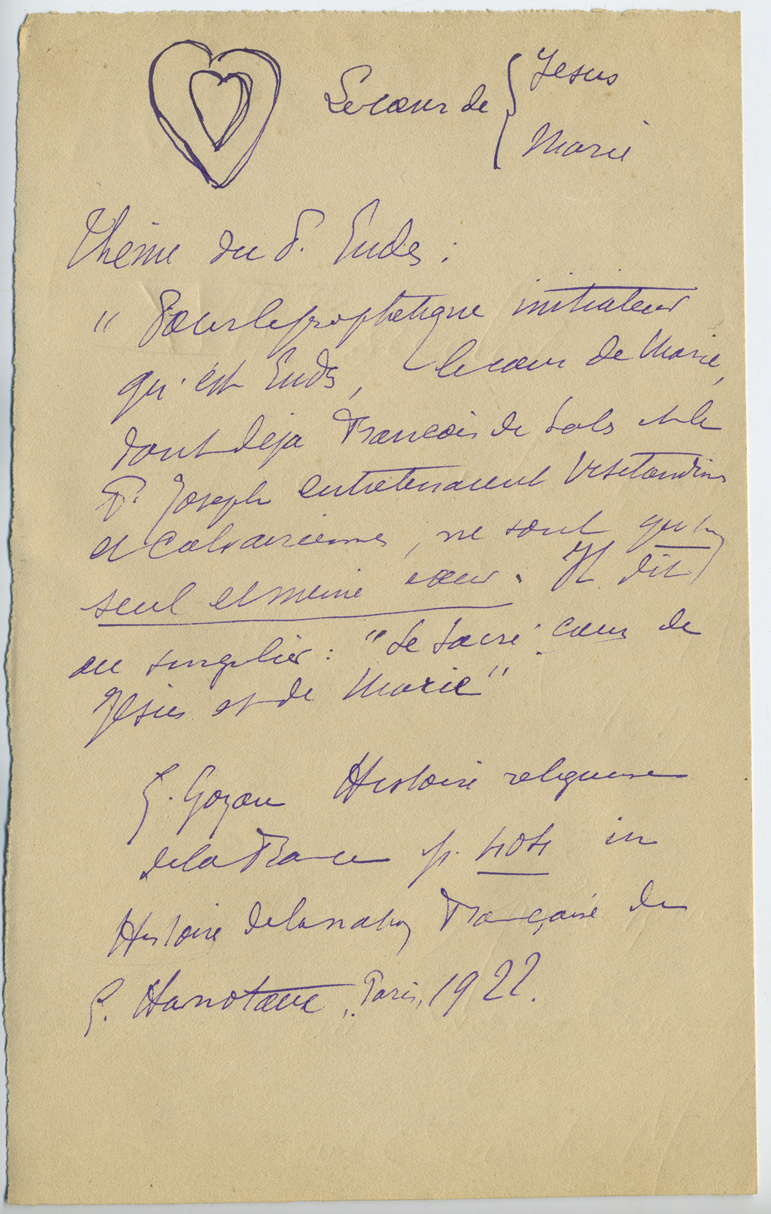 Le cœur de { Jesus
Marie
Thème du P. Eudes :
" Pour le prophétique initiateur
qu'est Eudes, le cœur de Marie,
dont déjà François de Sales et le
P. Joseph entretenaient Visitandines
et Calvairiennes, ne sont qu'un
seul et même cœur. Il dit
au singulier : "Le Sacré cœur de
Jésus et de Marie"
G. Goyau Histoire religieuse
de la France p. 404 in
Histoire de la nation Française de
G. Hanotaux, Paris, 1922.